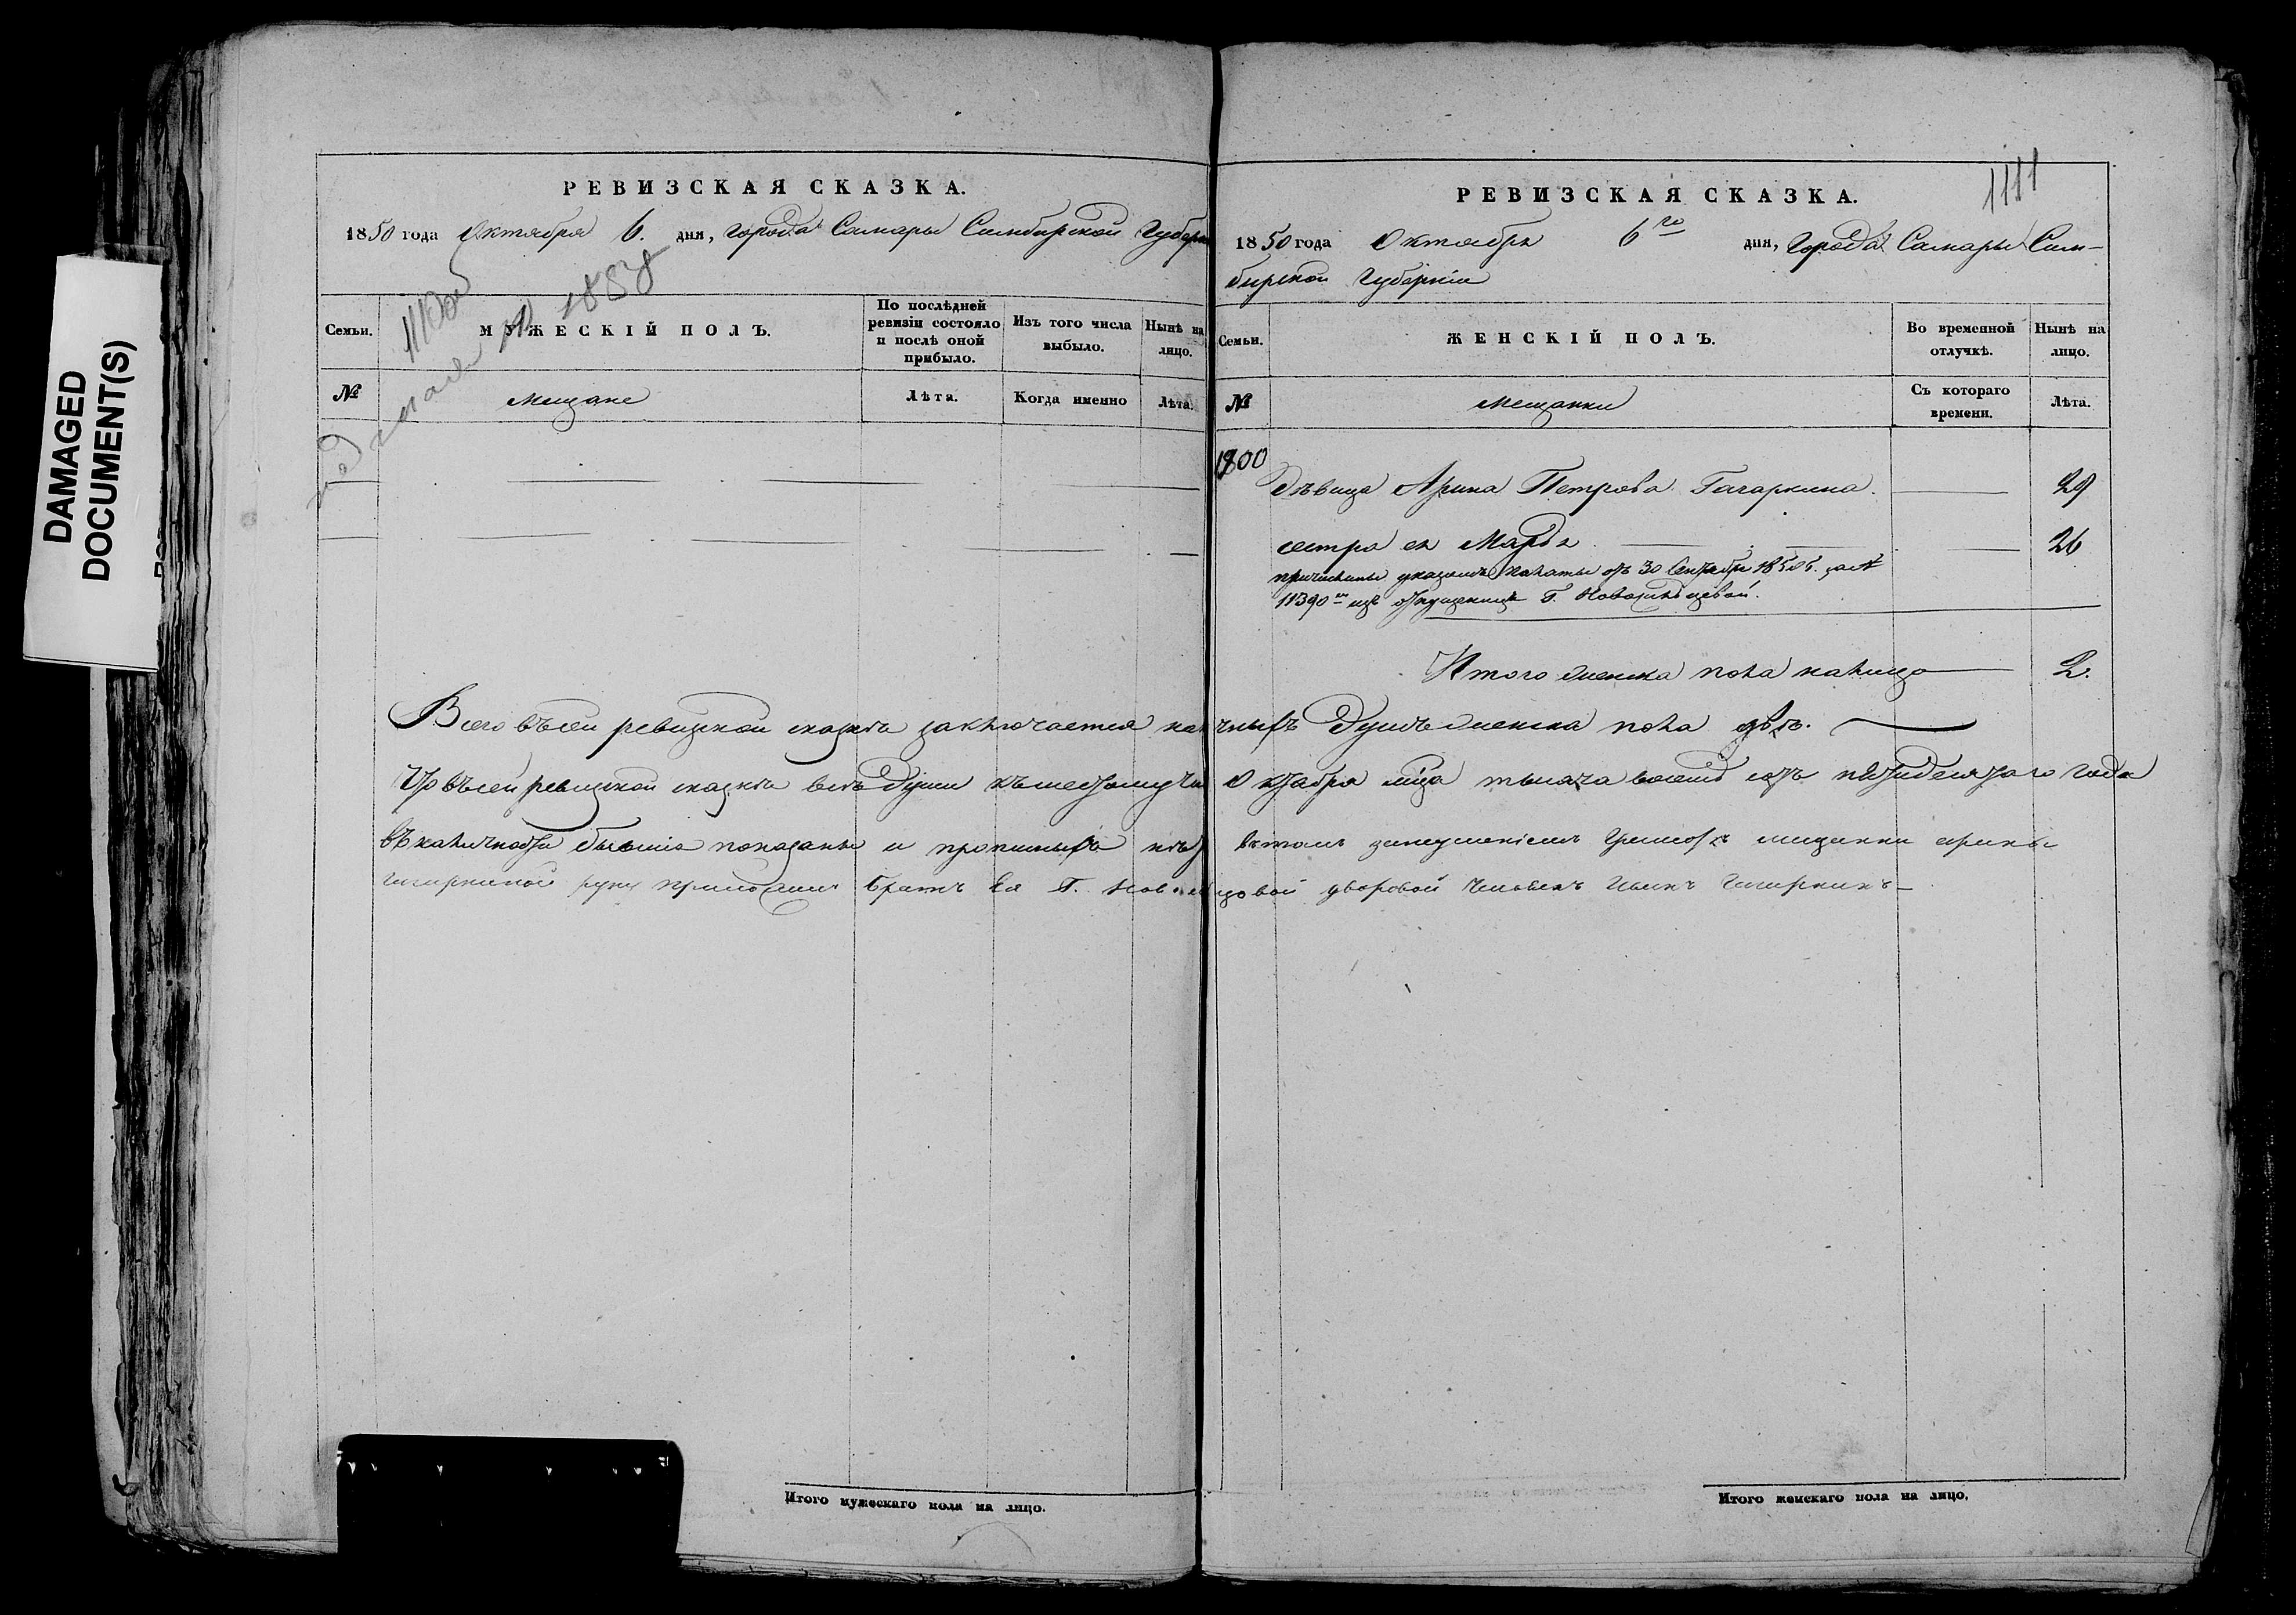 DAMAGED
DOCUMENT(S)
РЕВИЗСКАЯ СКАЗКА.
1850 года Октября 6. дня, города Самары Симбирской Губерн
Семьи.
МУЖЕСКІЙ ПОЛЪ.
По послѣдней
ревизіи состояло
и послѣ оной
прибыло.
Изъ того числа
выбыло.
Нынѣ на
лицо.
№
Мещане
Лѣта.
Когда именно
Лѣта.
1111
РЕВИЗСКАЯ СКАЗКА.
1850 года Октября 6го дня, Города Самары Сим-
бирской Губерніи
Семьи.
ЖЕНСКІЙ ПОЛЪ.
Во временной
отлучкѣ.
Нынѣ на
лицо.
№
Мещанки
Съ котораго
времени.
Лѣта.
1800
Дѣвица Арина Петрова Гагаркина. 29
сестра ея Марья 26
причислены указомъ палаты отъ 30 Сентября 1850 г. за №
11390 изъ отпущенницъ Г.
Итого женска пола налицо 2.
Всего въ сей ревизской сказкѣ заключается наличныхъ душъ женска пола двѣ.
Что въ сей ревизской сказкѣ всѣ души къ шестому чи Октября мѣца тысяча восемь сотъ пятидесятаго года
въ наличности бывшіе показаны и прописныхъ нѣтъ въ томъ мещанки арины
руку приложилъ братъ Ея Г. дворовой человекъ
Итого мужескаго пола на лицо.
Итого женскаго пола на лицо.